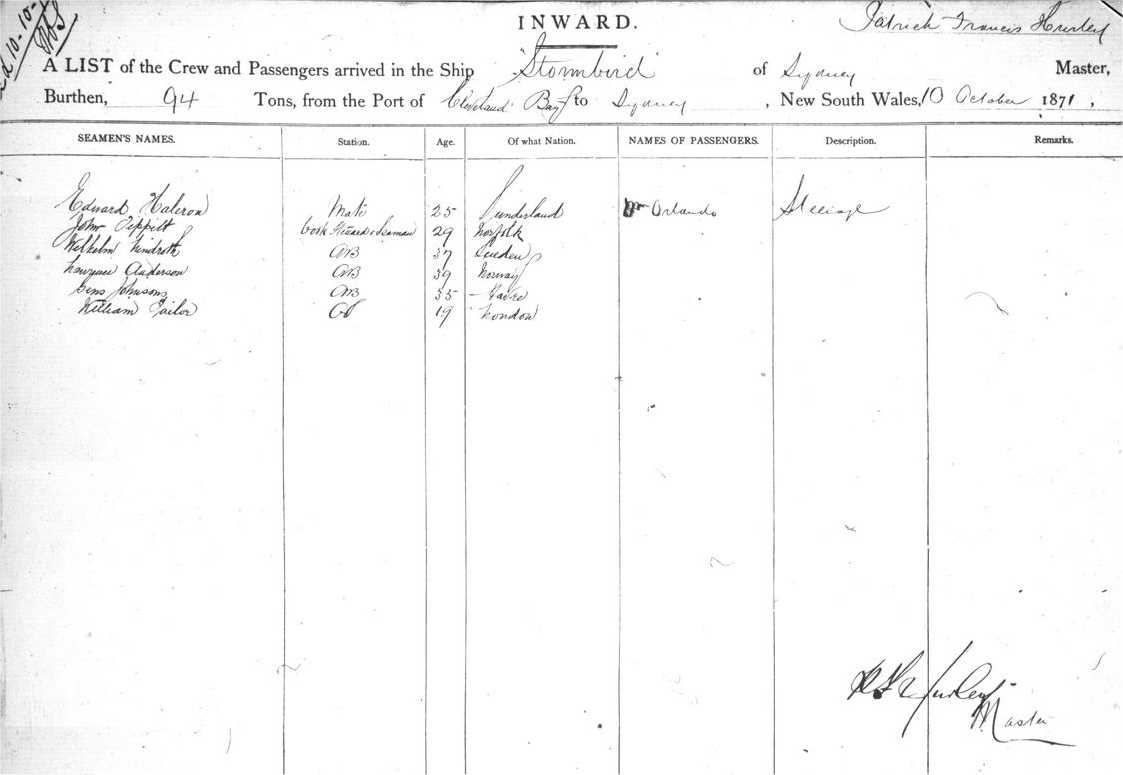 INWARD.
Patrick Francis Hurley
10-10-
A LIST of the Crew and Passengers arrived in the Ship "Stormbird" of Sydney Master,
Burthen, 94 Tons, from the Port of Cleveland Bay to Sydney, New South Wales, 10 October 1871,
SEAMEN'S NAMES. Station. Age. Of what Nation. NAMES OF PASSENGERS. Description. Remarks.
Edward Halcron Mate 25 Sunderland Mr Orlando Steerage
John Tippitt Cook Steward & Seaman 29 Norfolk
Wilhelm Lindroth AB 37 Sweden
Anderson AB 39 Norway
Johnsons AB 35 Havre
William Tailor OS 19 London
Hurley
Master